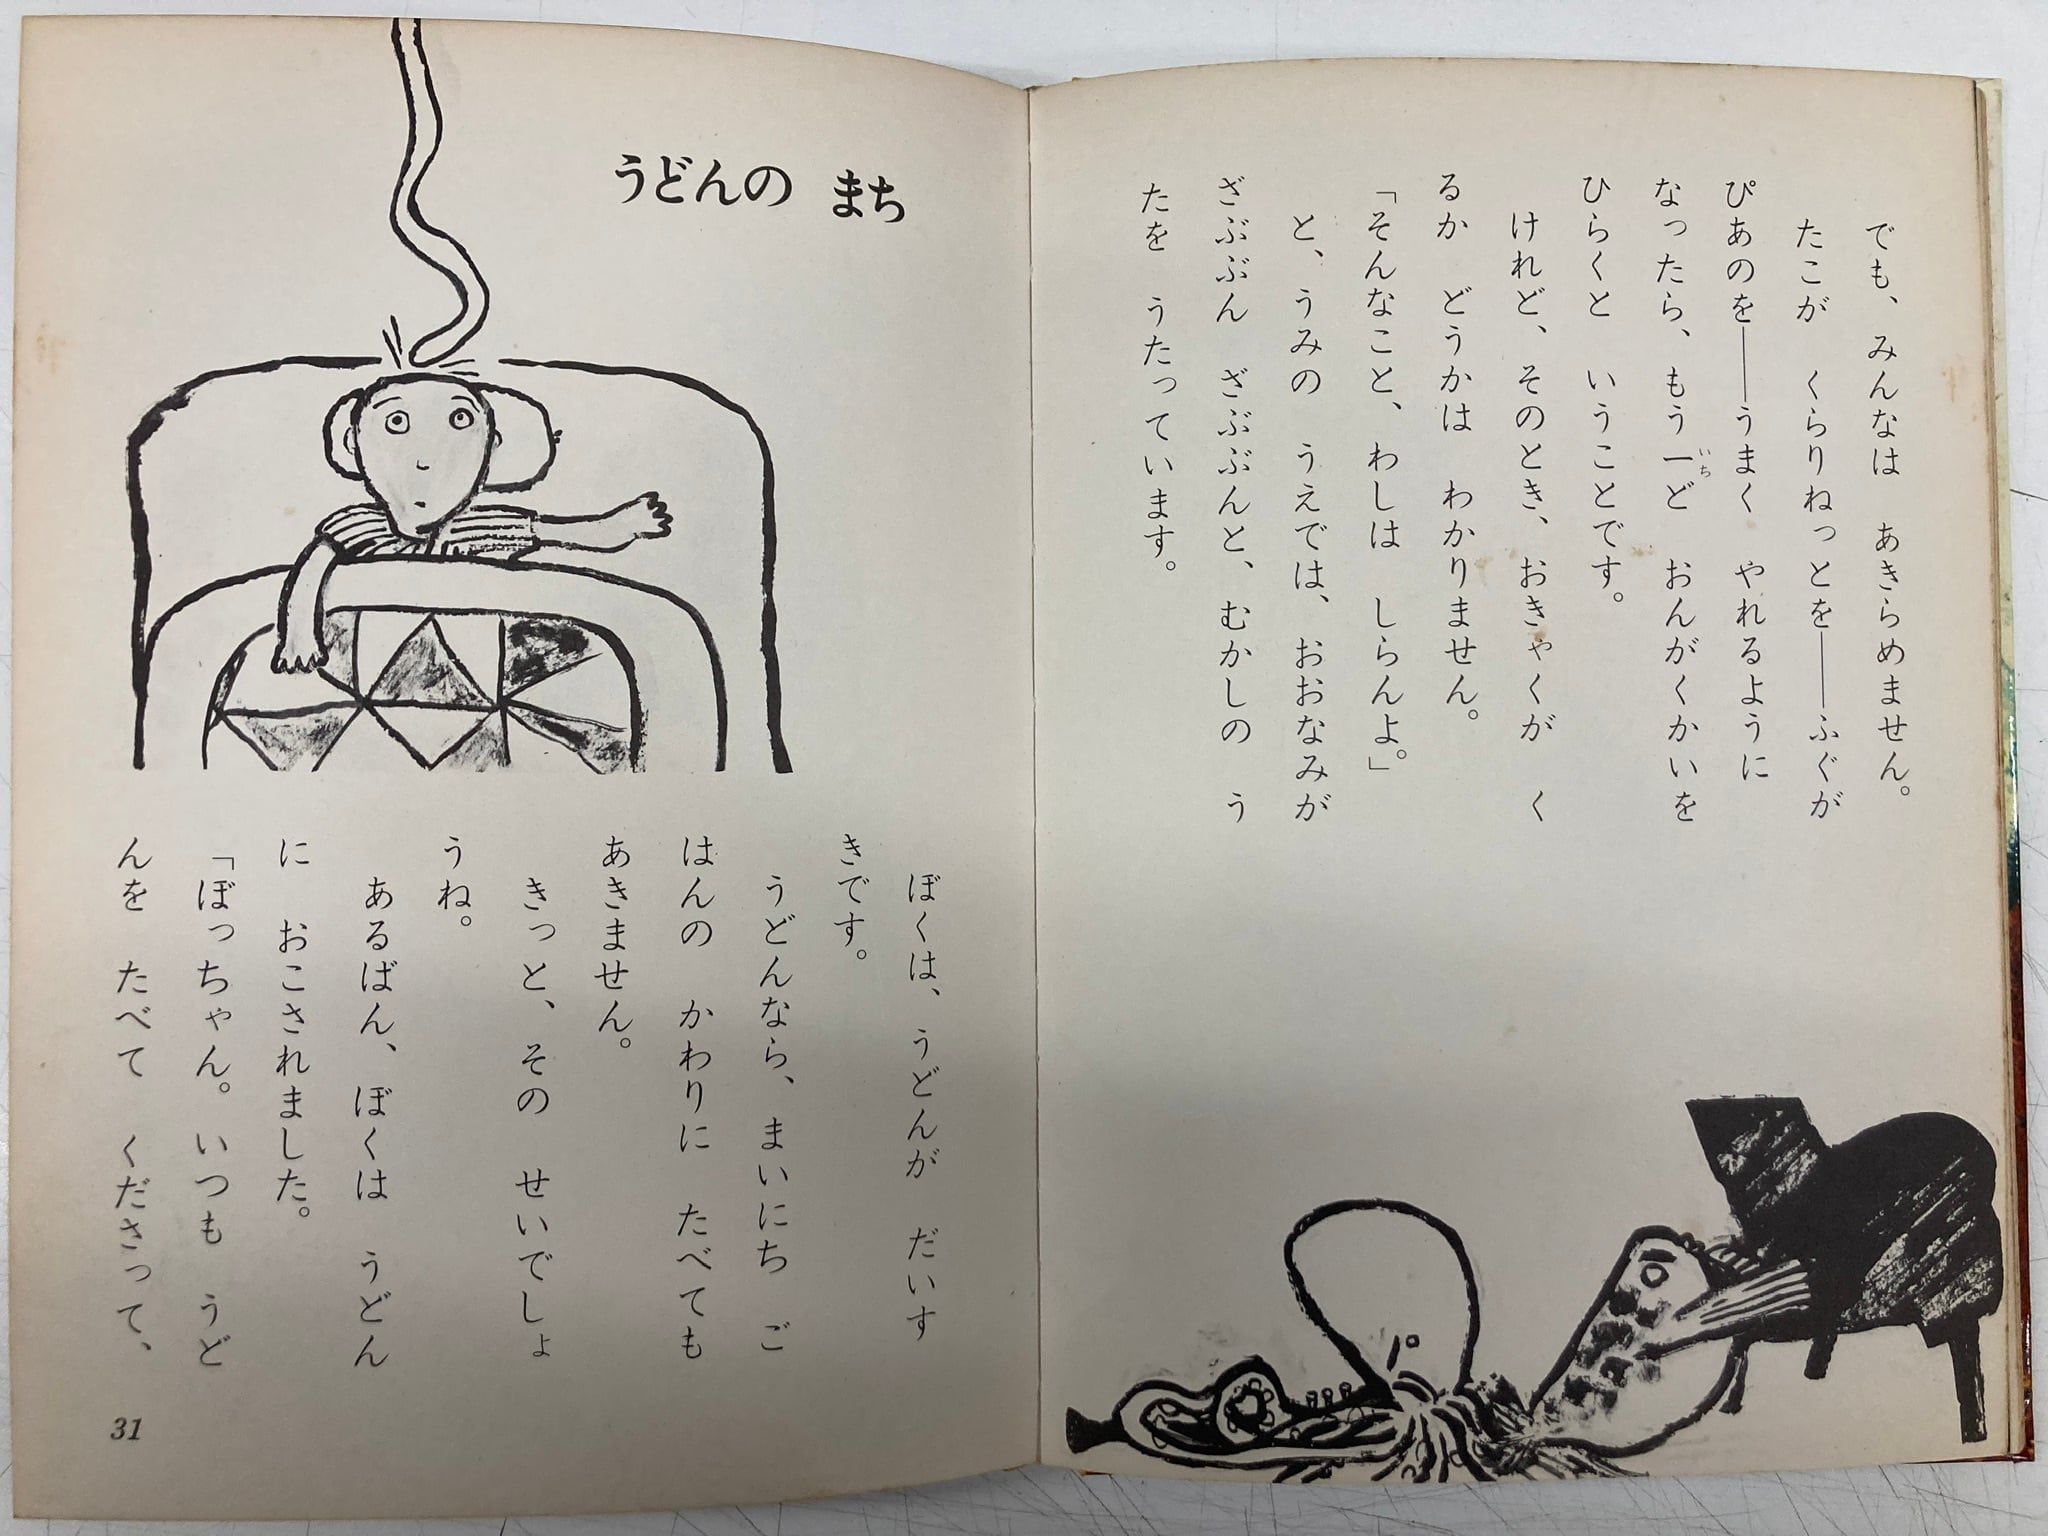 でも、みんなは　あきらめません。
たこが　くらりねっとを――ふぐが
ぴあのを――うまく　やれるように
なったら、もう一ど　おんがくかいを
いち
ひらくと　いうことです。
けれど、そのとき、おきゃくが　く
るか　どうかは　わかりません。
「そんなこと、わしは　しらんよ。」
と、うみの　うえでは、おおなみが
ざぶぶん　ざぶぶんと、むかしの　う
たを　うたっています。
うどんの　まち
ぼくは、うどんが　だいす
きです。
うどんなら、まいにち　ご
はんの　かわりに　たべても
あきません。
きっと、その　せいでしょ
うね。
あるばん、ぼくは　うどん
に　おこされました。
「ぼっちゃん。いつも　うど
んを　たべて　くださって、
31